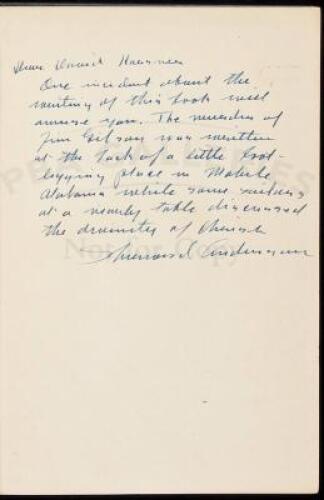 Dear David
One incident about the
writing of this book will
amuse you. The murder of
Jim Gibson was written
at the back of a little boot-
legging place in Mobile
Alabama while some sailors
at a nearby table discussed
the divinity of Christ
Sherwood Anderson
Not for Copy